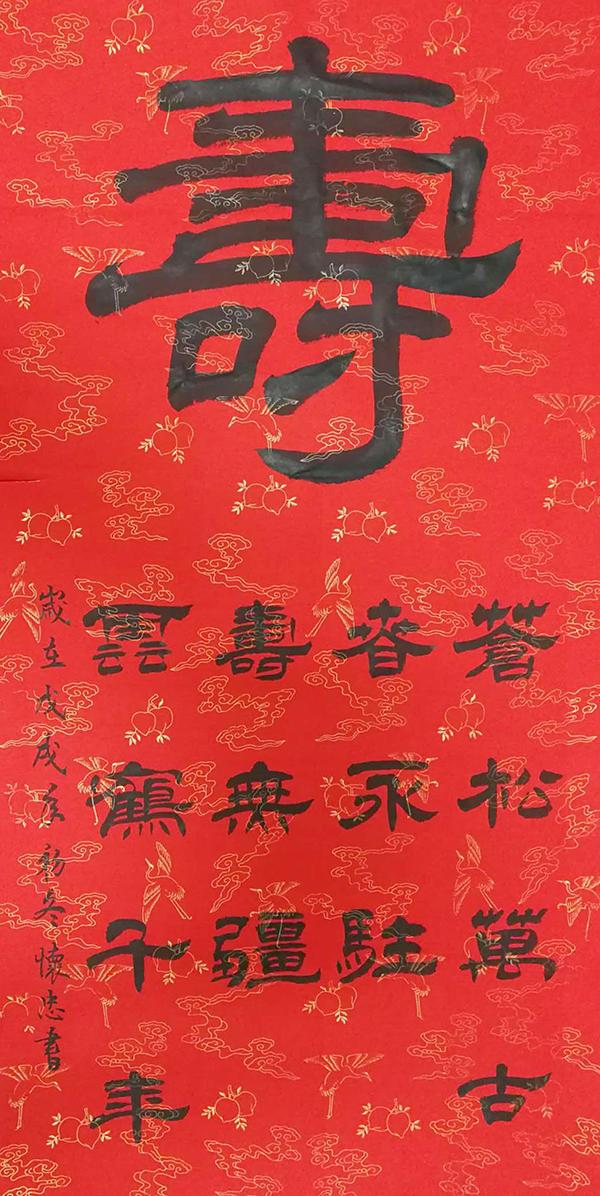 壽
蒼松萬古
春永駐
壽無疆
雲鶴千年
歲在戊戌年初冬懷忠書